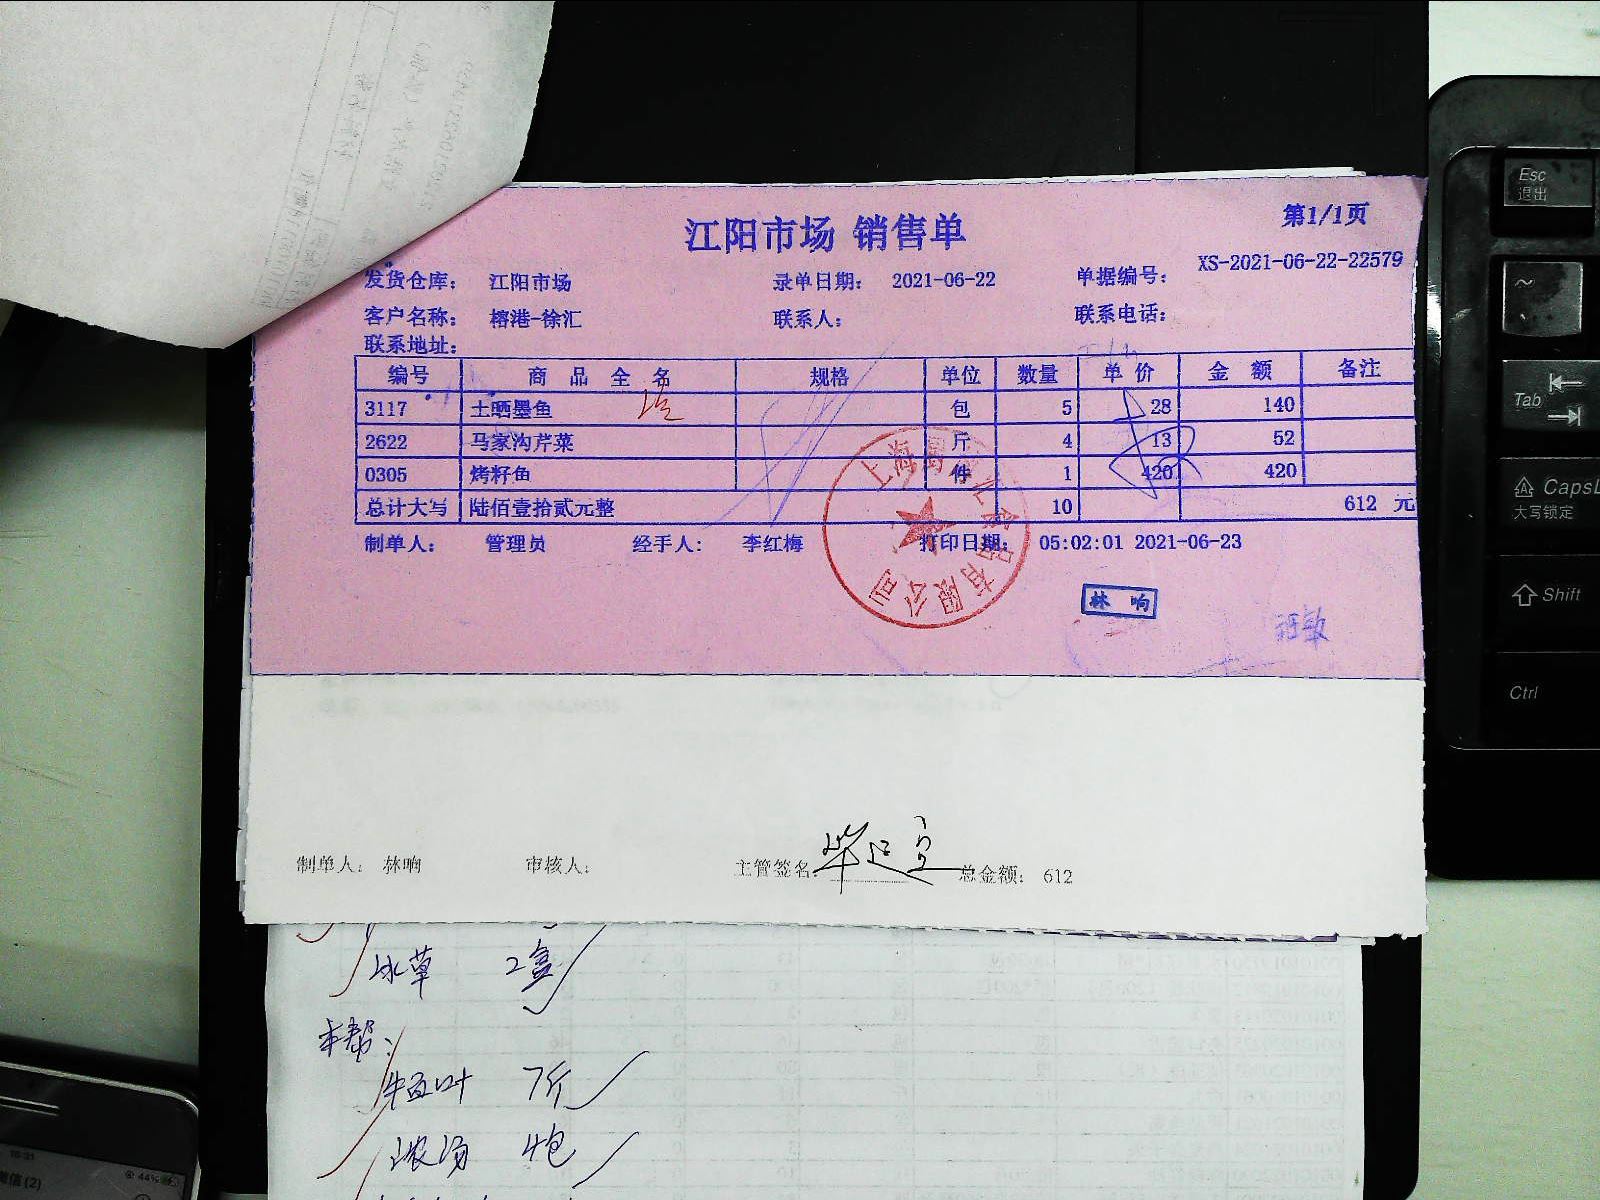 江阳市场 销售单
第1/1页
发货仓库： 江阳市场 录单日期： 2021-06-22 单据编号： XS-2021-06-22-22579
客户名称： 榕港-徐汇 联系人： 联系电话：
联系地址：
编号 商 品 全 名 规格 单位 数量 单 价 金 额 备注
3117 土晒墨鱼 包 5 28 140
2622 马家沟芹菜 斤 4 13 52
0305 烤籽鱼 件 1 420 420
总计大写 陆佰壹拾贰元整 10 612 元
制单人： 管理员 经手人： 李红梅 打印日期： 05:02:01 2021-06-23
林 响
制单人： 林响 审核人： 主管签名： 总金额： 612
冰草 2盒
本帮：
牛百叶 7斤
浓汤 4包
Esc
退出
~
Tab
CapsL
大写锁定
Shift
Ctrl
16:31
微信(2) 44%